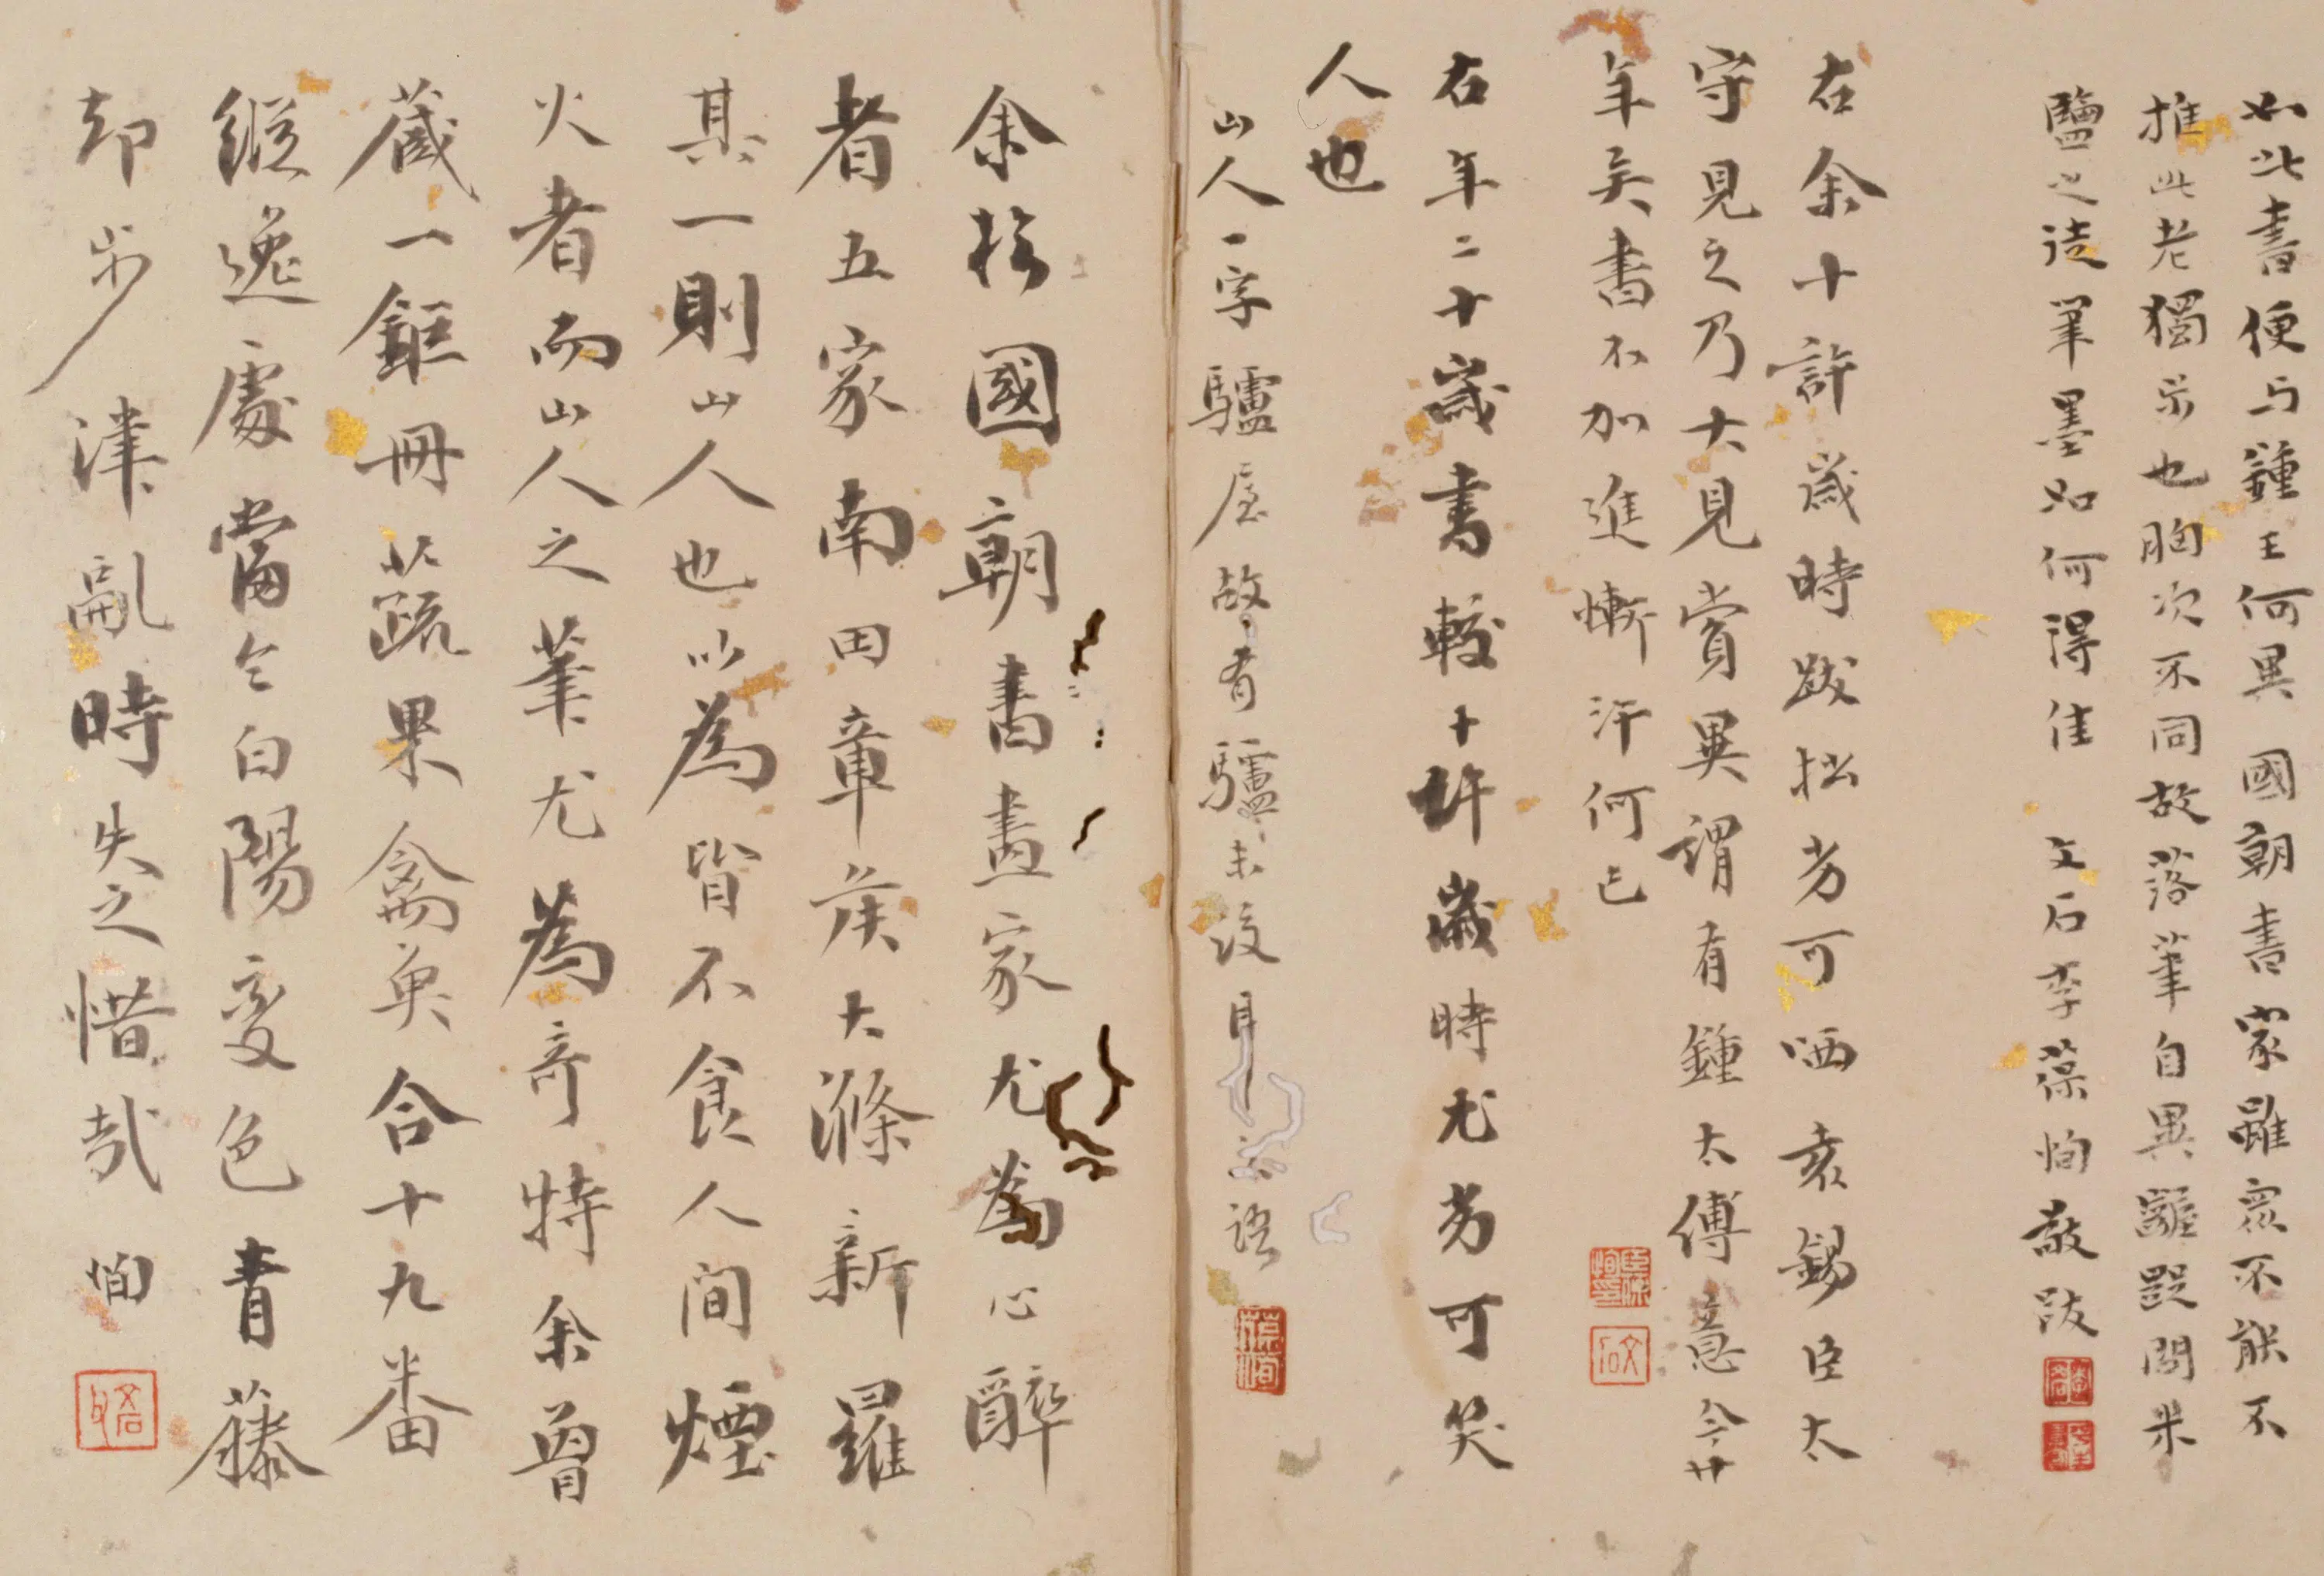 如此書便与鍾王何異國朝書家雖衆不能不
推此老獨步也胸次不同故落筆自異齷齪問米
鹽之徒筆墨如何得佳 文石李葆恂敬跋
右余十許歲時跋拙劣可哂袁錫臣太
守見之乃大見賞異謂有鍾太傅意今廿
年矣書不加進慚汗何已
右年二十歲書較十許歲時尤劣可笑
人也
山人一字驢屋故有驢末後耳 語
余於國朝書畫家尤爲心醉
者五家南田章侯大滌新羅
其一則山人也以爲皆不食人間煙
火者而山人之筆尤爲奇特余曾
藏一鉅冊花蔬果禽魚合十九番
縱逸處當令白陽變色青藤
却步津亂時失之惜哉 恂